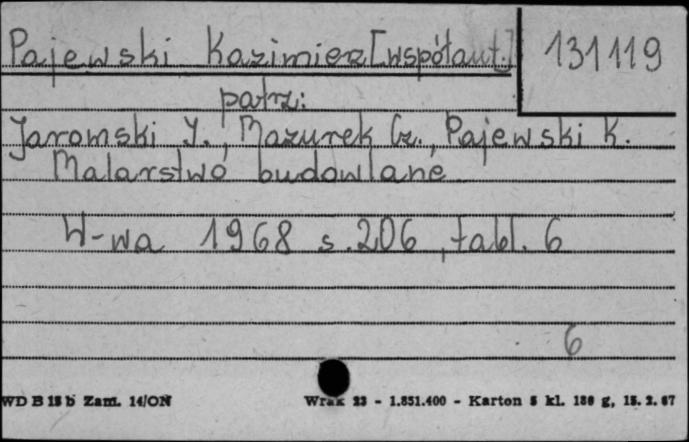 Pajewski Kazimierz [współaut.] 131119
patrz:
Jaromski J., Mazurek Cz., Pajewski K.
Malarstwo budowlane
W-wa 1968 s. 206, tabl. 6
6
WD B 15 b Zam. 14/ON Wrak 23 - 1.851.400 - Karton 5 kl. 180 g, 15. 2. 67